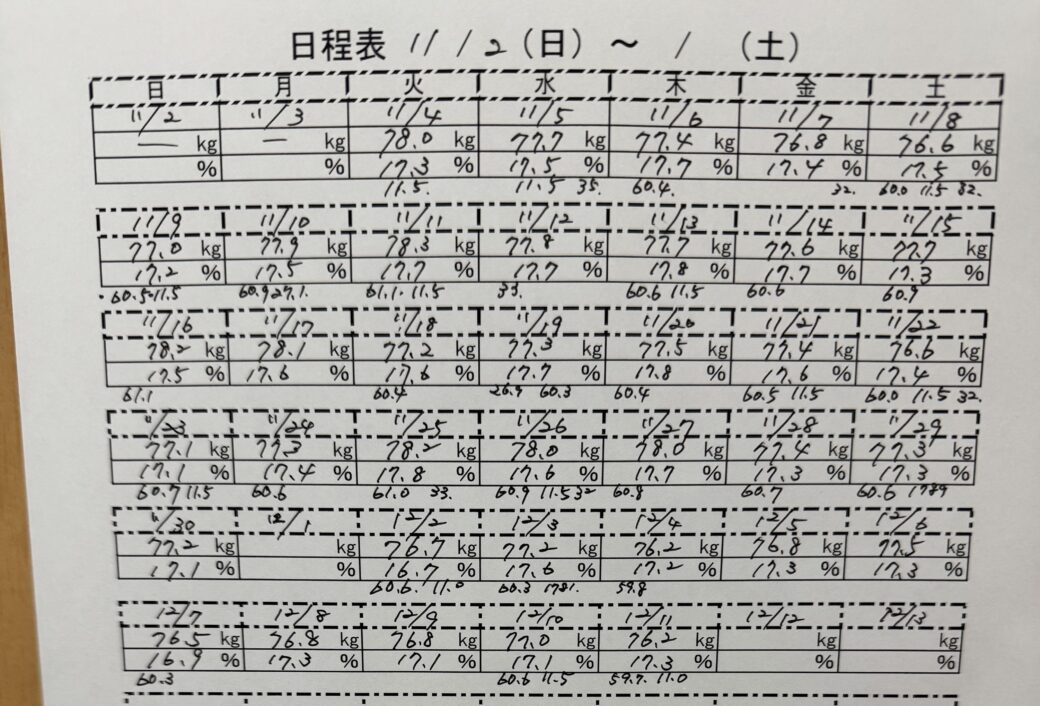 日程表 11/2(日) ~ / (土)
日 月 火 水 木 金 土
11/2 11/3 11/4 11/5 11/6 11/7 11/8
— kg — kg 78.0 kg 77.7 kg 77.4 kg 76.8 kg 76.6 kg
% % 17.3 % 17.5 % 17.7 % 17.4 % 17.5 %
11.5. 11.5 35. 60.4. 32. 60.0 11.5 32.
11/9 11/10 11/11 11/12 11/13 11/14 11/15
77.0 kg 77.9 kg 78.3 kg 77.8 kg 77.7 kg 77.6 kg 77.7 kg
17.2 % 17.5 % 17.7 % 17.7 % 17.8 % 17.7 % 17.3 %
60.5 11.5 60.9 27.1. 61.1. 11.5 33. 60.6 11.5 60.6 60.9
11/16 11/17 11/18 11/19 11/20 11/21 11/22
78.2 kg 78.1 kg 77.2 kg 77.3 kg 77.5 kg 77.4 kg 76.6 kg
17.5 % 17.6 % 17.6 % 17.7 % 17.8 % 17.6 % 17.4 %
61.1 60.4 26.9 60.3 60.4 60.5 11.5 60.0 11.5 32.
11/23 11/24 11/25 11/26 11/27 11/28 11/29
77.1 kg 77.3 kg 78.2 kg 78.0 kg 78.0 kg 77.4 kg 77.3 kg
17.1 % 17.4 % 17.8 % 17.6 % 17.7 % 17.3 % 17.3 %
60.7 11.5 60.6 61.0 33. 60.9 11.5 32 60.8 60.7 60.6 1789
11/30 12/1 12/2 12/3 12/4 12/5 12/6
77.2 kg kg 76.7 kg 77.2 kg 76.2 kg 76.8 kg 77.5 kg
17.1 % % 16.7 % 17.6 % 17.2 % 17.3 % 17.3 %
60.6. 11.0 60.3 1781. 59.8
12/7 12/8 12/9 12/10 12/11 12/12 12/13
76.5 kg 76.8 kg 76.8 kg 77.0 kg 76.2 kg kg kg
16.9 % 17.3 % 17.1 % 17.1 % 17.3 % % %
60.3 60.6 11.5 59.7. 11.0